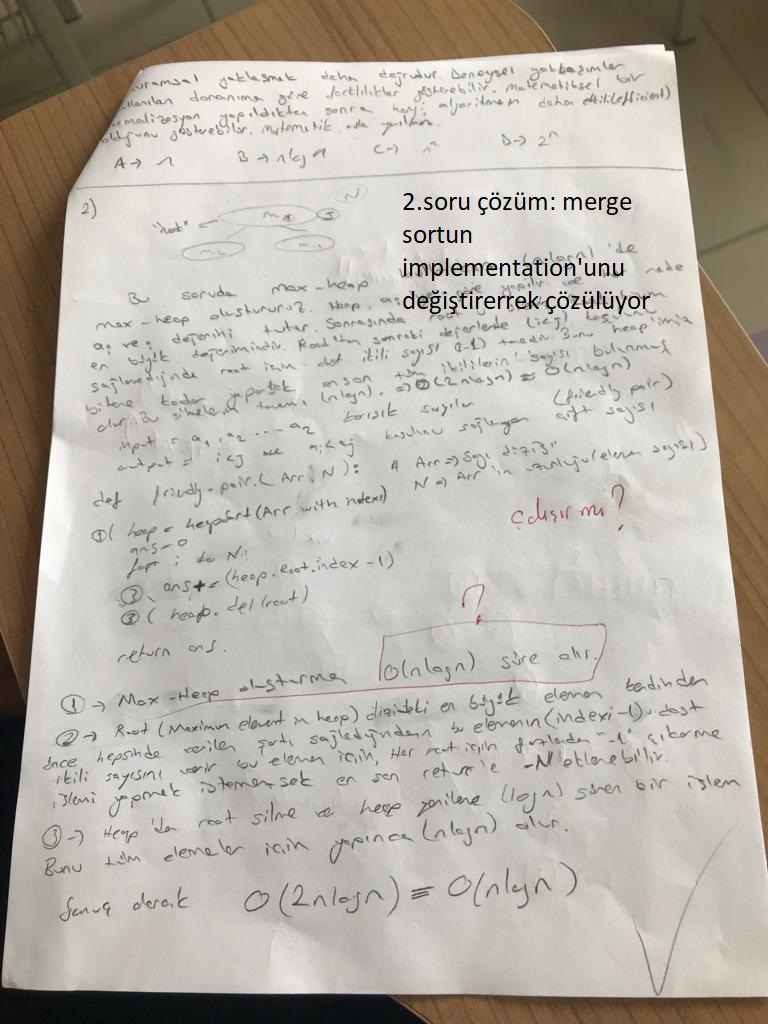 kuramsal yaklaşmak daha doğrudur. Deneysel yaklaşımlar
kullanılan donanıma göre farklılıklar gösterebilir. Matematiksel bir
yapıldıktan sonra hangi algoritmanın daha etkili(efficient)
olduğunu gösterebilir.
A → n B → nlogn C → n² D → 2ⁿ
2)
N
"root"
2.soru çözüm: merge
sortun
implementation'unu
değiştirerrek çözülüyor
Bu soruda max-heap (nlogn)'de
max-heap oluştururuz. Heap,
değerini tutar. Sonrasında root
en büyük değerimizdir. Root'tan sonraki değerlerde (i<j) koşulunu
sağlamadığında root için dost ikili sayısı (i-1) tanedir. Bunu heap'imiz
bitene kadar yaparsak en son tüm ikililerin sayısı bulunmuş
olur. Bu silmelerin tamamı (nlogn). => O(2nlogn) = O(nlogn)
input = a₁, a₂ .... a₂ karışık sayılar
output = i<j ise aᵢ<aⱼ koşulunu sağlayan (friendly pair) çift sayısı
def friendly-pair(Arr, N): # Arr => Sayı dizisi
N => Arr'ın uzunluğu (eleman sayısı)
① ( heap = heapsort(Arr with index)
ans=0
for i to N:
③ ans+= (heap.root.index-1)
② ( heap.del(root)
return ans.
Çalışır mı?
?
① → Max-Heap oluşturma O(nlogn) süre alır.
② → Root (Maximum element in heap) dizideki en büyük eleman kendinden
önce hepsinde verilen şartı sağladığından bu elemanın (indexi-1) dost
ikili sayısını verir bu eleman için, Her root için fazladan "-1" çıkarma
işlemi yapmak istemezsek en son return'e -N eklenebilir.
③ → Heap'da root silme ve heap yenileme (logn) süren bir işlem
Bunu tüm elemanlar için yapınca (nlogn) olur.
Sonuç olarak O(2nlogn) ≡ O(nlogn)